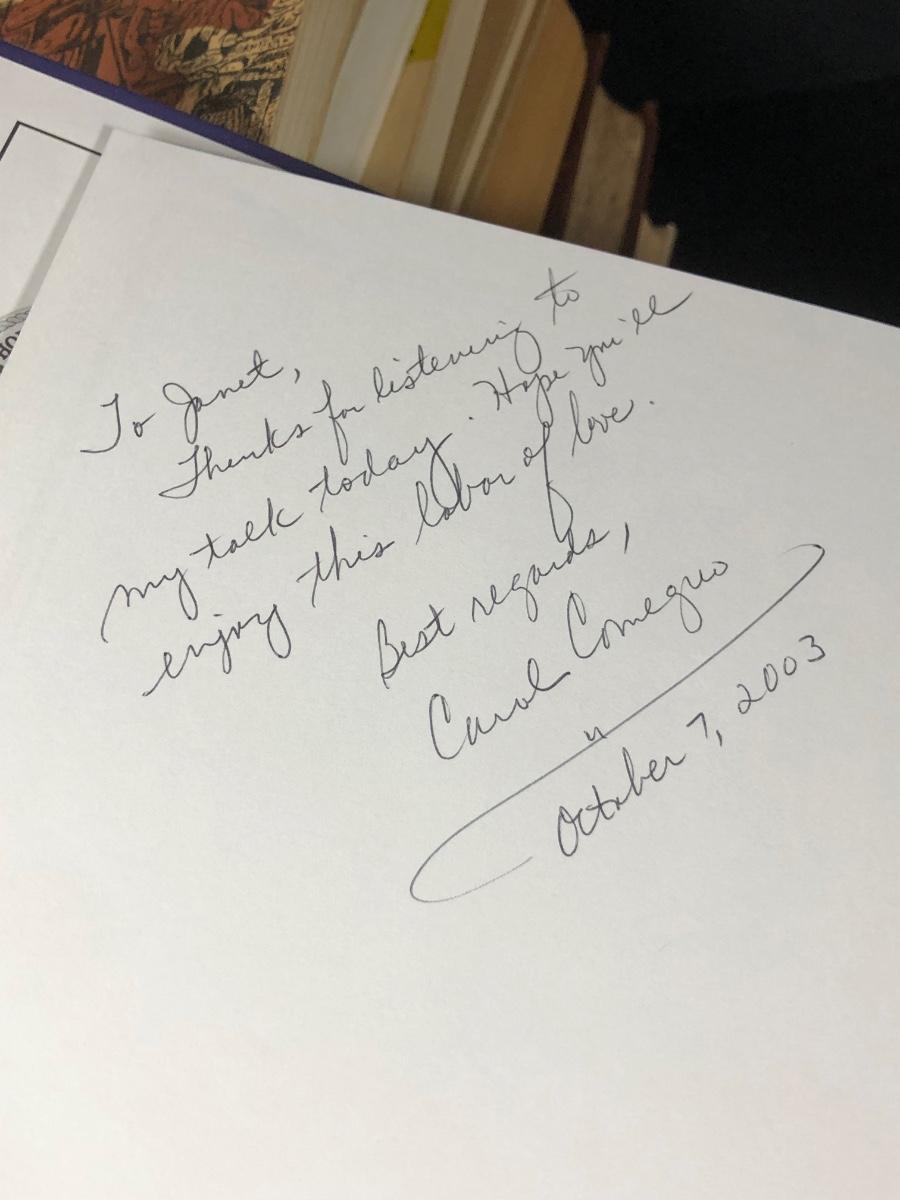 To Janet,
Thanks for listening to
my talk today. Hope you'll
enjoy this labor of love.
Best regards,
Carol Comegno
October 7, 2003